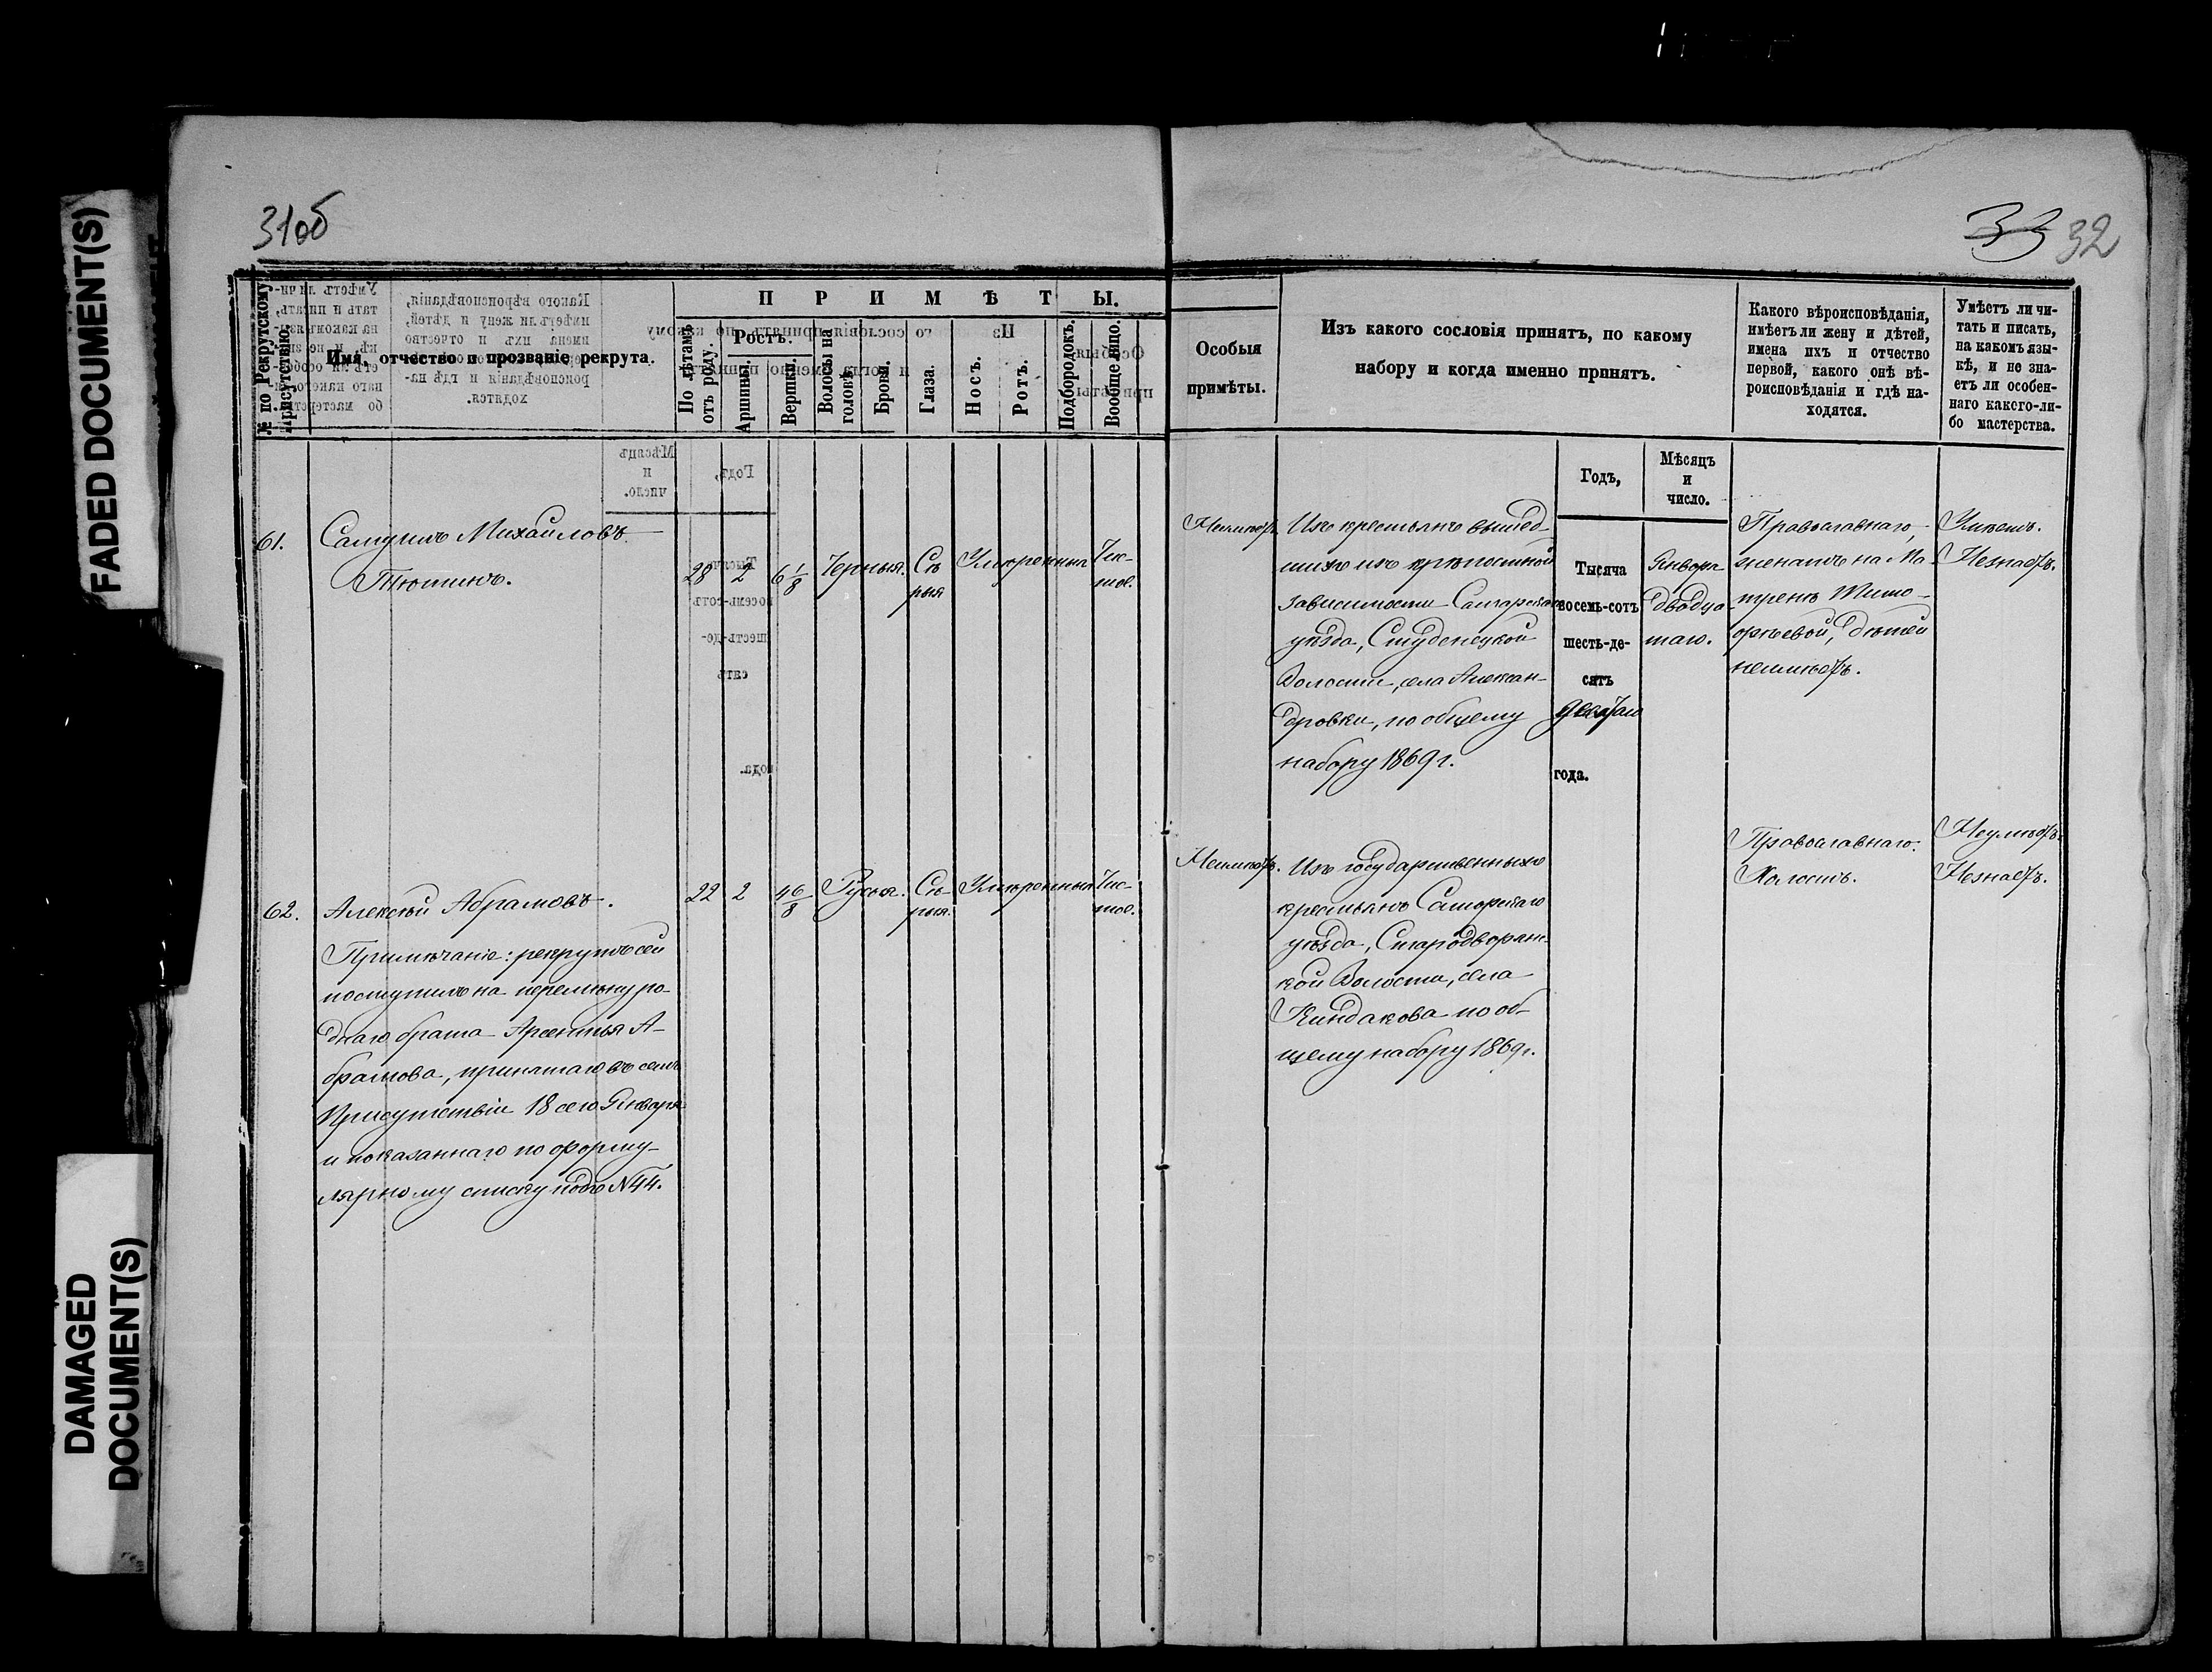 FADED DOCUMENT(S)
DAMAGED
DOCUMENT(S)
31об
33 32
№ по Рекрутскому
присутствію.
Имя, отчество и прозваніе рекрута.
ПРИМѢТЫ.
По лѣтамъ
отъ роду.
Ростъ.
Аршины.
Вершки.
Волосы на
головѣ.
Брови.
Глаза.
Носъ.
Ротъ.
Подбородокъ.
Вообще лицо.
Особыя
примѣты.
Изъ какого сословія принятъ, по какому
набору и когда именно принятъ.
Годъ,
Мѣсяцъ
и
число.
Какого вѣроисповѣданія,
имѣетъ ли жену и дѣтей,
имена ихъ и отчество
первой, какого онѣ вѣ-
роисповѣданія и гдѣ на-
ходятся.
Умѣетъ ли чи-
тать и писать,
на какомъ язы-
кѣ, и не зна-
етъ ли особен-
наго какого-ли-
бо мастерства.
61.
Самуилъ Михайловъ
Тютинъ.
28
2
6 1/8
Черныя.
Сѣ
рыя
Умѣренныя
Чис-
тое.
Неимѣетъ.
Изъ крестьянъ вышед-
шихъ изъ крѣпостной
зависимости Самарскаго
уѣзда, Студенецкой
Волости, села Алексан-
дровки, по общему
набору 1869 г.
Тысяча
восемь-сотъ
шесть-де-
сятъ
девятаго
года.
Января
двадца
таго.
Православнаго,
женатъ на Ма
тренѣ Тимо-
ѳѣевой, дѣтей
неимѣетъ.
Умѣетъ.
Незнаетъ.
62.
Алексѣй Абрамовъ.
Примѣчаніе: рекрутъ сей
поступилъ на перемѣну ро-
днаго брата Арсентья А-
брамова, принятаго въ семъ
Присутствіи 18 сего Января
и показаннаго по форму-
лярному списку подъ N 44.
22
2
4 6/8
Русыя.
Сѣ-
рыя.
Умѣренныя
Чис-
тое.
Неимѣетъ.
Изъ государственныхъ
крестьянъ Самарскаго
уѣзда, Стародворян-
кой Волости, села
Киндакова по об-
щему набору 1869 г.
Православнаго.
Холостъ.
Неумѣетъ.
Незнаетъ.